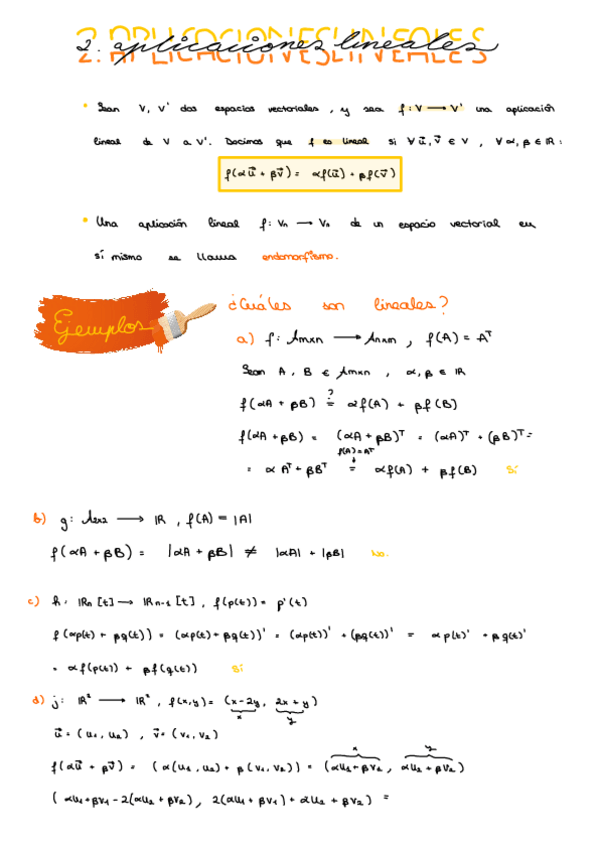 2. APLICACIONES LINEALES
2. aplicaciones lineales
• Sean V, V' dos espacios vectoriales, y sea f: V ⟶ V' una aplicación
lineal de V a V'. Decimos que f es lineal si ∀ u⃗, v⃗ ∈ V, ∀ α, β ∈ IR:
f(αu⃗ + βv⃗) = αf(u⃗) + βf(v⃗)
• Una aplicación lineal f: Vn ⟶ Vn de un espacio vectorial en
sí mismo se llama endomorfismo.
Ejemplos
¿Cuáles son lineales?
a) f: Amxn ⟶ Anxm, f(A) = Aᵀ
Sean A, B ∈ Amxn, α, β ∈ IR
?
f(αA + βB) = αf(A) + βf(B)
f(αA + βB) = (αA + βB)ᵀ = (αA)ᵀ + (βB)ᵀ =
f(A) = Aᵀ
= αAᵀ + βBᵀ = αf(A) + βf(B) Sí
b) g: A2x2 ⟶ IR, f(A) = |A|
f(αA + βB) = |αA + βB| ≠ |αA| + |βB| No.
c) h: IRn[t] ⟶ IRn-1[t], f(p(t)) = p'(t)
f(αp(t) + βq(t)) = (αp(t) + βq(t))' = (αp(t))' + (βq(t))' = αp(t)' + βq(t)'
= αf(p(t)) + βf(q(t)) Sí
d) j: IR² ⟶ IR², f(x,y) = (x-2y, 2x+y)
x y
u⃗ = (u1, u2), v⃗ = (v1, v2)
x y
f(αu⃗ + βv⃗) = (α(u1, u2) + β(v1, v2)) = (αu1 + βv1, αu2 + βv2)
(αu1 + βv1 - 2(αu2 + βv2), 2(αu1 + βv1) + αu2 + βv2) =